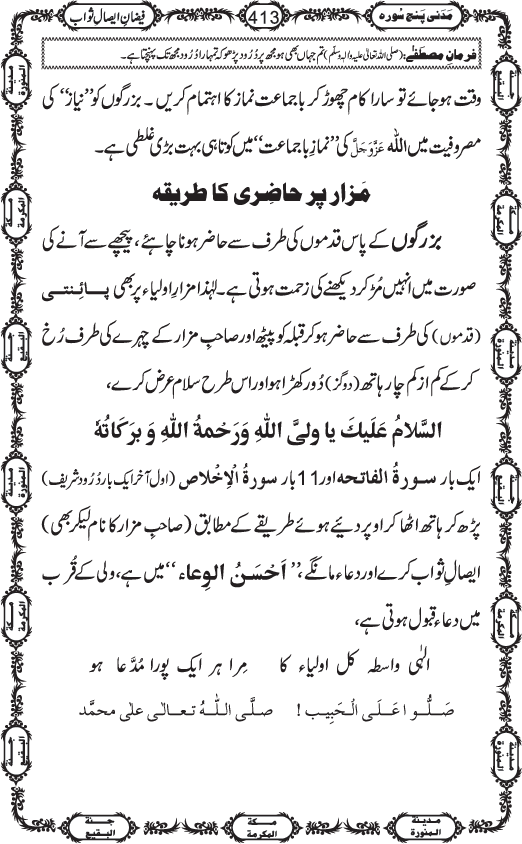 مَدَنی پنج سُورہ
413
فیضانِ ایصالِ ثواب
فرمانِ مصطَفٰے: (صلی اللہ تعالیٰ علیہ والہ وسلّم) تم جہاں بھی ہو مجھ پر دُرُود پڑھو کہ تمہارا دُرُود مجھ تک پہنچتا ہے۔
وقت ہو جائے تو سارا کام چھوڑ کر باجماعت نماز کا اہتمام کریں۔ بزرگوں کو ”نیاز“ کی
مصروفیت میں اللہ عَزَّوَجَلَّ کی ”نمازِ باجماعت“ میں کوتاہی بہت بڑی غلطی ہے۔
مَزار پر حاضِری کا طریقہ
بزرگوں کے پاس قدموں کی طرف سے حاضر ہونا چاہئے، پیچھے سے آنے کی
صورت میں انہیں مُڑ کر دیکھنے کی زحمت ہوتی ہے۔ لہٰذا مزارِ اولیاء پر بھی پائِنتی
(قدموں) کی طرف سے حاضر ہو کر قبلہ کو پیٹھ اور صاحبِ مزار کے چہرے کی طرف رُخ
کر کے کم از کم چار ہاتھ (دو گز) دُور کھڑا ہو اور اس طرح سلام عرض کرے،
السَّلامُ عَلَیكَ یا ولیَّ اللہِ وَرَحْمۃُ اللہِ وَ بَرَکَاتُہٗ
ایک بار سورۃُ الفاتحہ اور 11 بار سورۃُ الْاِخْلاص (اول آخر ایک بار دُرُود شریف)
پڑھ کر ہاتھ اٹھا کر اوپر دئیے ہوئے طریقے کے مطابق (صاحبِ مزار کا نام لیکر بھی)
ایصالِ ثواب کرے اور دعاء مانگے، ”اَحْسَنُ الوِعاء“ میں ہے، ولی کے قُرب
میں دعاء قبول ہوتی ہے،
الٰہی واسِطہ کل اولیاء کا مِرا ہر ایک پورا مُدَّعا ہو
صَلُّوا عَلَی الْحَبِیب! صلَّی اللّٰہُ تعالٰی علٰی محمَّد
مدینۃ المنورۃ
مکۃ المکرمۃ
جنۃ البقیع
مدینۃ المنورۃ
مکۃ المکرمۃ
جنۃ البقیع
مدینۃ المنورۃ
مکۃ المکرمۃ
مدینۃ المنورۃ
جنۃ البقیع
مکۃ المکرمۃ
مدینۃ المنورۃ
جنۃ البقیع
مکۃ المکرمۃ
مدینۃ المنورۃ